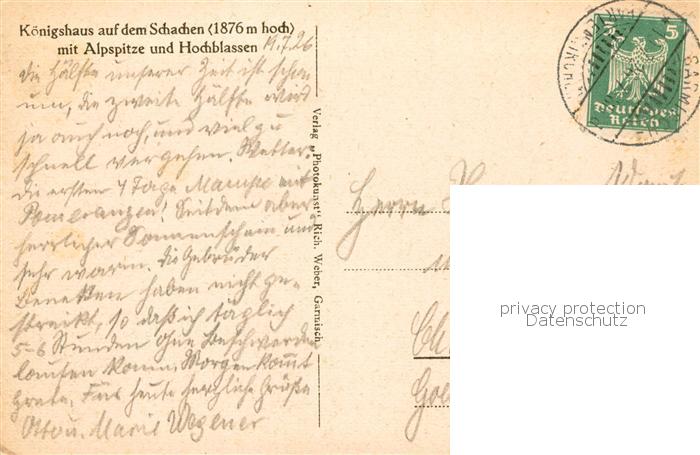 Königshaus auf dem Schachen (1876 m hoch)
mit Alpspitze und Hochblassen
19.7.26
die Hälfte unserer Zeit ist schon
um, die zweite Hälfte wird
ja auch noch, und viel zu
schnell vergehen. Wetter:
die ersten 4 Tage mit
Pomeranzen! Seitdem aber
herrlicher Sonnenschein und
sehr warm. Die Gebrüder
haben nicht ge-
streikt, so daß ich täglich
5-6 Stunden ohne Beschwerden
laufen kann. Morgen kommt
Grete. Für heute herzliche Grüße
Otto u. Marie Wegener
Verlag "Photokunst" Rich. Weber, Garmisch
5 5
Deutsches
Reich
Herrn
privacy protection
Datenschutz